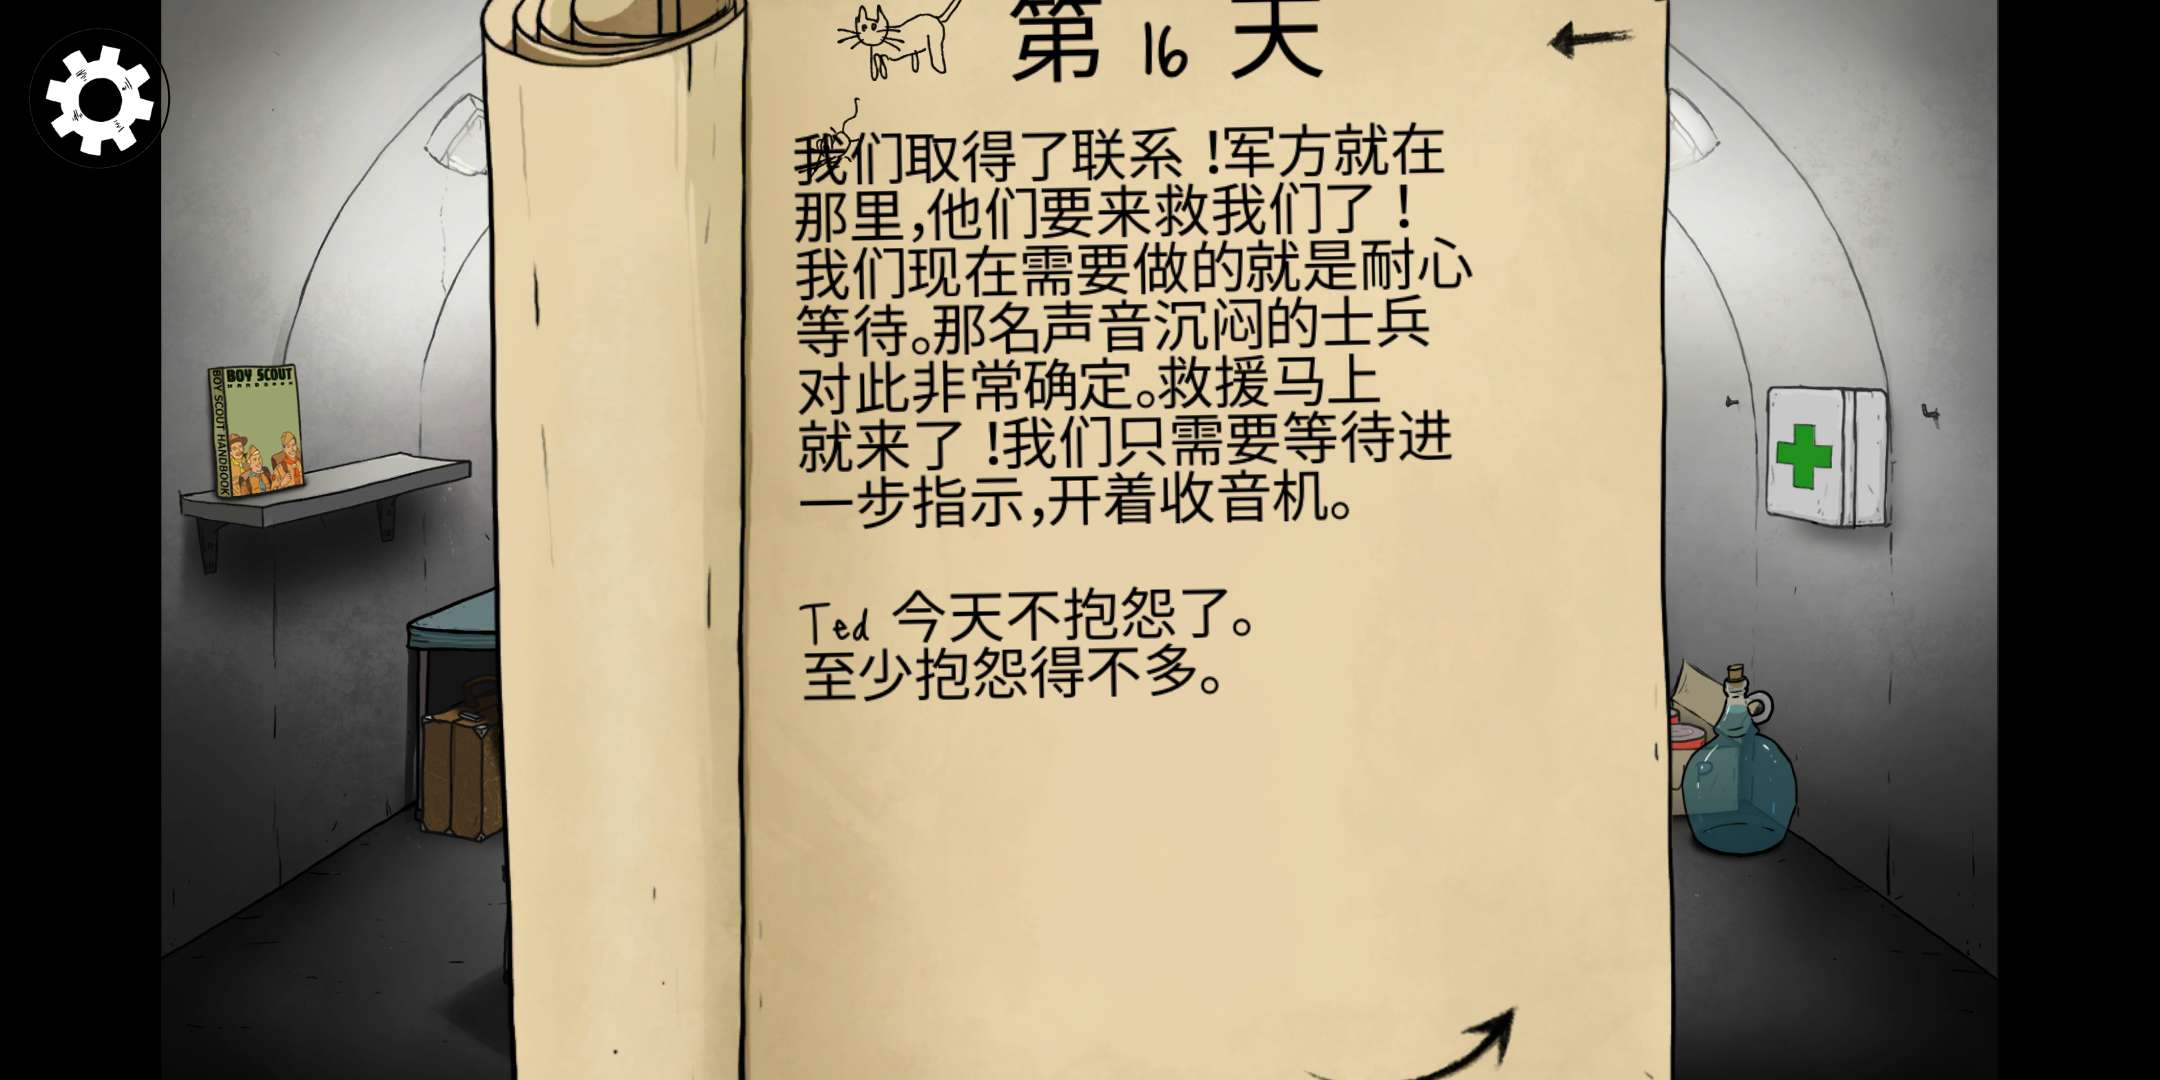 第 16 天
我们取得了联系！军方就在
那里，他们要来救我们了！
我们现在需要做的就是耐心
等待。那名声音沉闷的士兵
对此非常确定。救援马上
就来了！我们只需要等待进
一步指示，开着收音机。
Ted 今天不抱怨了。
至少抱怨得不多。
BOY SCOUT
HANDBOOK
BOY SCOUT HANDBOOK